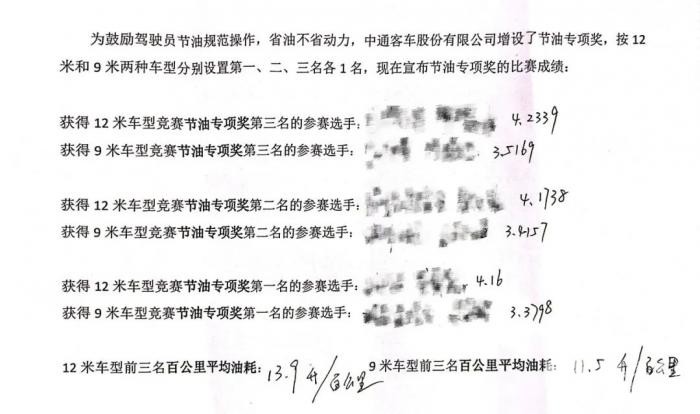 为鼓励驾驶员节油规范操作，省油不省动力，中通客车股份有限公司增设了节油专项奖，按 12
米和 9 米两种车型分别设置第一、二、三名各 1 名，现在宣布节油专项奖的比赛成绩：
获得 12 米车型竞赛节油专项奖第三名的参赛选手： 4.2339
获得 9 米车型竞赛节油专项奖第三名的参赛选手： 3.5169
获得 12 米车型竞赛节油专项奖第二名的参赛选手： 4.1738
获得 9 米车型竞赛节油专项奖第二名的参赛选手： 3.4157
获得 12 米车型竞赛节油专项奖第一名的参赛选手： 4.16
获得 9 米车型竞赛节油专项奖第一名的参赛选手： 3.3798
12 米车型前三名百公里平均油耗：13.9 升/百公里 9 米车型前三名百公里平均油耗：11.5 升/百公里